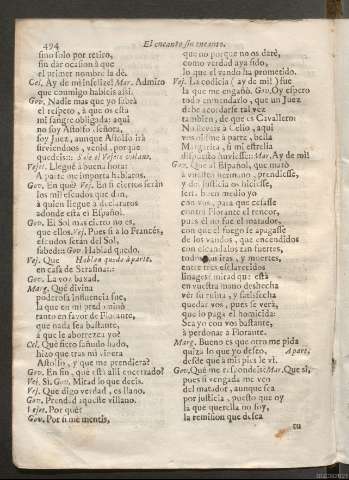 494 El encanto sin encanto.
sino solo por retiro,
sin dar ocasion à que
el primer nombre la dè.
Cel. Ay de mi infelize! Mar. Admiro
que conmigo hableis assi.
Gov. Nadie mas que yo sabrà
el respeto, à que os està
mi sangre obligada: aqui
no soy Astolfo, señora,
soy Juez, aunque Astolfo irà
sirviendoos, venid, porque
quedeis:- Sale el Vejete villano.
Vejet. Lleguè à buena hora:
A parte me importa hablaros.
Gov. En què? Vej. En si ciertos seràn
los mil escudos que dàn,
à quien llegue à declararos
adonde està el Español.
Gov. El Sol mas cierto no es,
que ellos. Vej. Pues si a lo Francès,
escudos seràn del Sol,
sabed:- Gov. Hablad quedo.
Vej. Que Hablan quedo à parte.
en casa de Serafina:-
Gov. La voz baxad.
Marg. Què divina
poderosa influencia fue,
la que en mi predominò
tanto en favor de Florante,
que nada sea bastante,
à que le aborrezca yo?
Cel. Què ficro sañudo hado,
hizo que tras mi viniera
Astolfo, y que me prendiera?
Gov. En fin, que està alli encerrado?
Vej. Si. Gov. Mirad lo que decis.
Vej. Que digo verdad, es llano.
Gov. Prended aqueste villano.
Vejet. Por què?
Gov. Por si me mentis,
que no porque no os darè,
como verdad aya sido,
lo que el vando ha prometido.
Vej. La codicia (ay de mi!) fue
la que me engañò. Gov. Oy espero
todo enmendarlo, que un Juez
debe acordarse tal vez
tambien, de que es Cavallero:
No lleveis à Celio, aqui
vos oidme à parte, bella
Margarita, si mi estrella
dispuso tuviesse:- Mar. Ay de mi!
Gov. Que al Español, que matò
à vuestro hermano, prendiesse,
y dèl justicia os hiciesse,
serà buen medio yo
con vos, para que cessasse
contra Florante el rencor,
pues èl no fue el matador,
con que el fuego se apagasse
de los vandos, que encendidos
con escandalos tan fuertes,
todo son iras, y muertes,
entre tres esclarecidos
linages? mirad que està
en vuestra mano deshecha
ver su ruina, y satisfecha
quedar vos, pues se verà,
que lo paga el homicida:
Sea yo con vos bastante,
à perdonar à Florante.
Marg. Bueno es que otro me pida
quizà lo que yo deseo, A part.
desde que à mis pies le vi.
Gov. Què me respondeis? Mar. Que sì,
pues si vengada me veo
del matador, aunque sea
por justicia, puesto que oy
la que querella no soy,
la remission que desea
tu